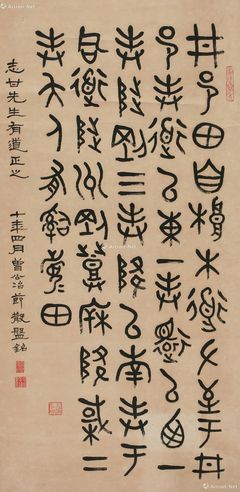 井邑田自根木道左至于井
邑封道以東一封還以西一
封陟剛三封降以南封于
同道陟州剛登降棫二
封夨人有嗣眉田
志甘先生有道正之 十年四月曾公冶節散盤銘